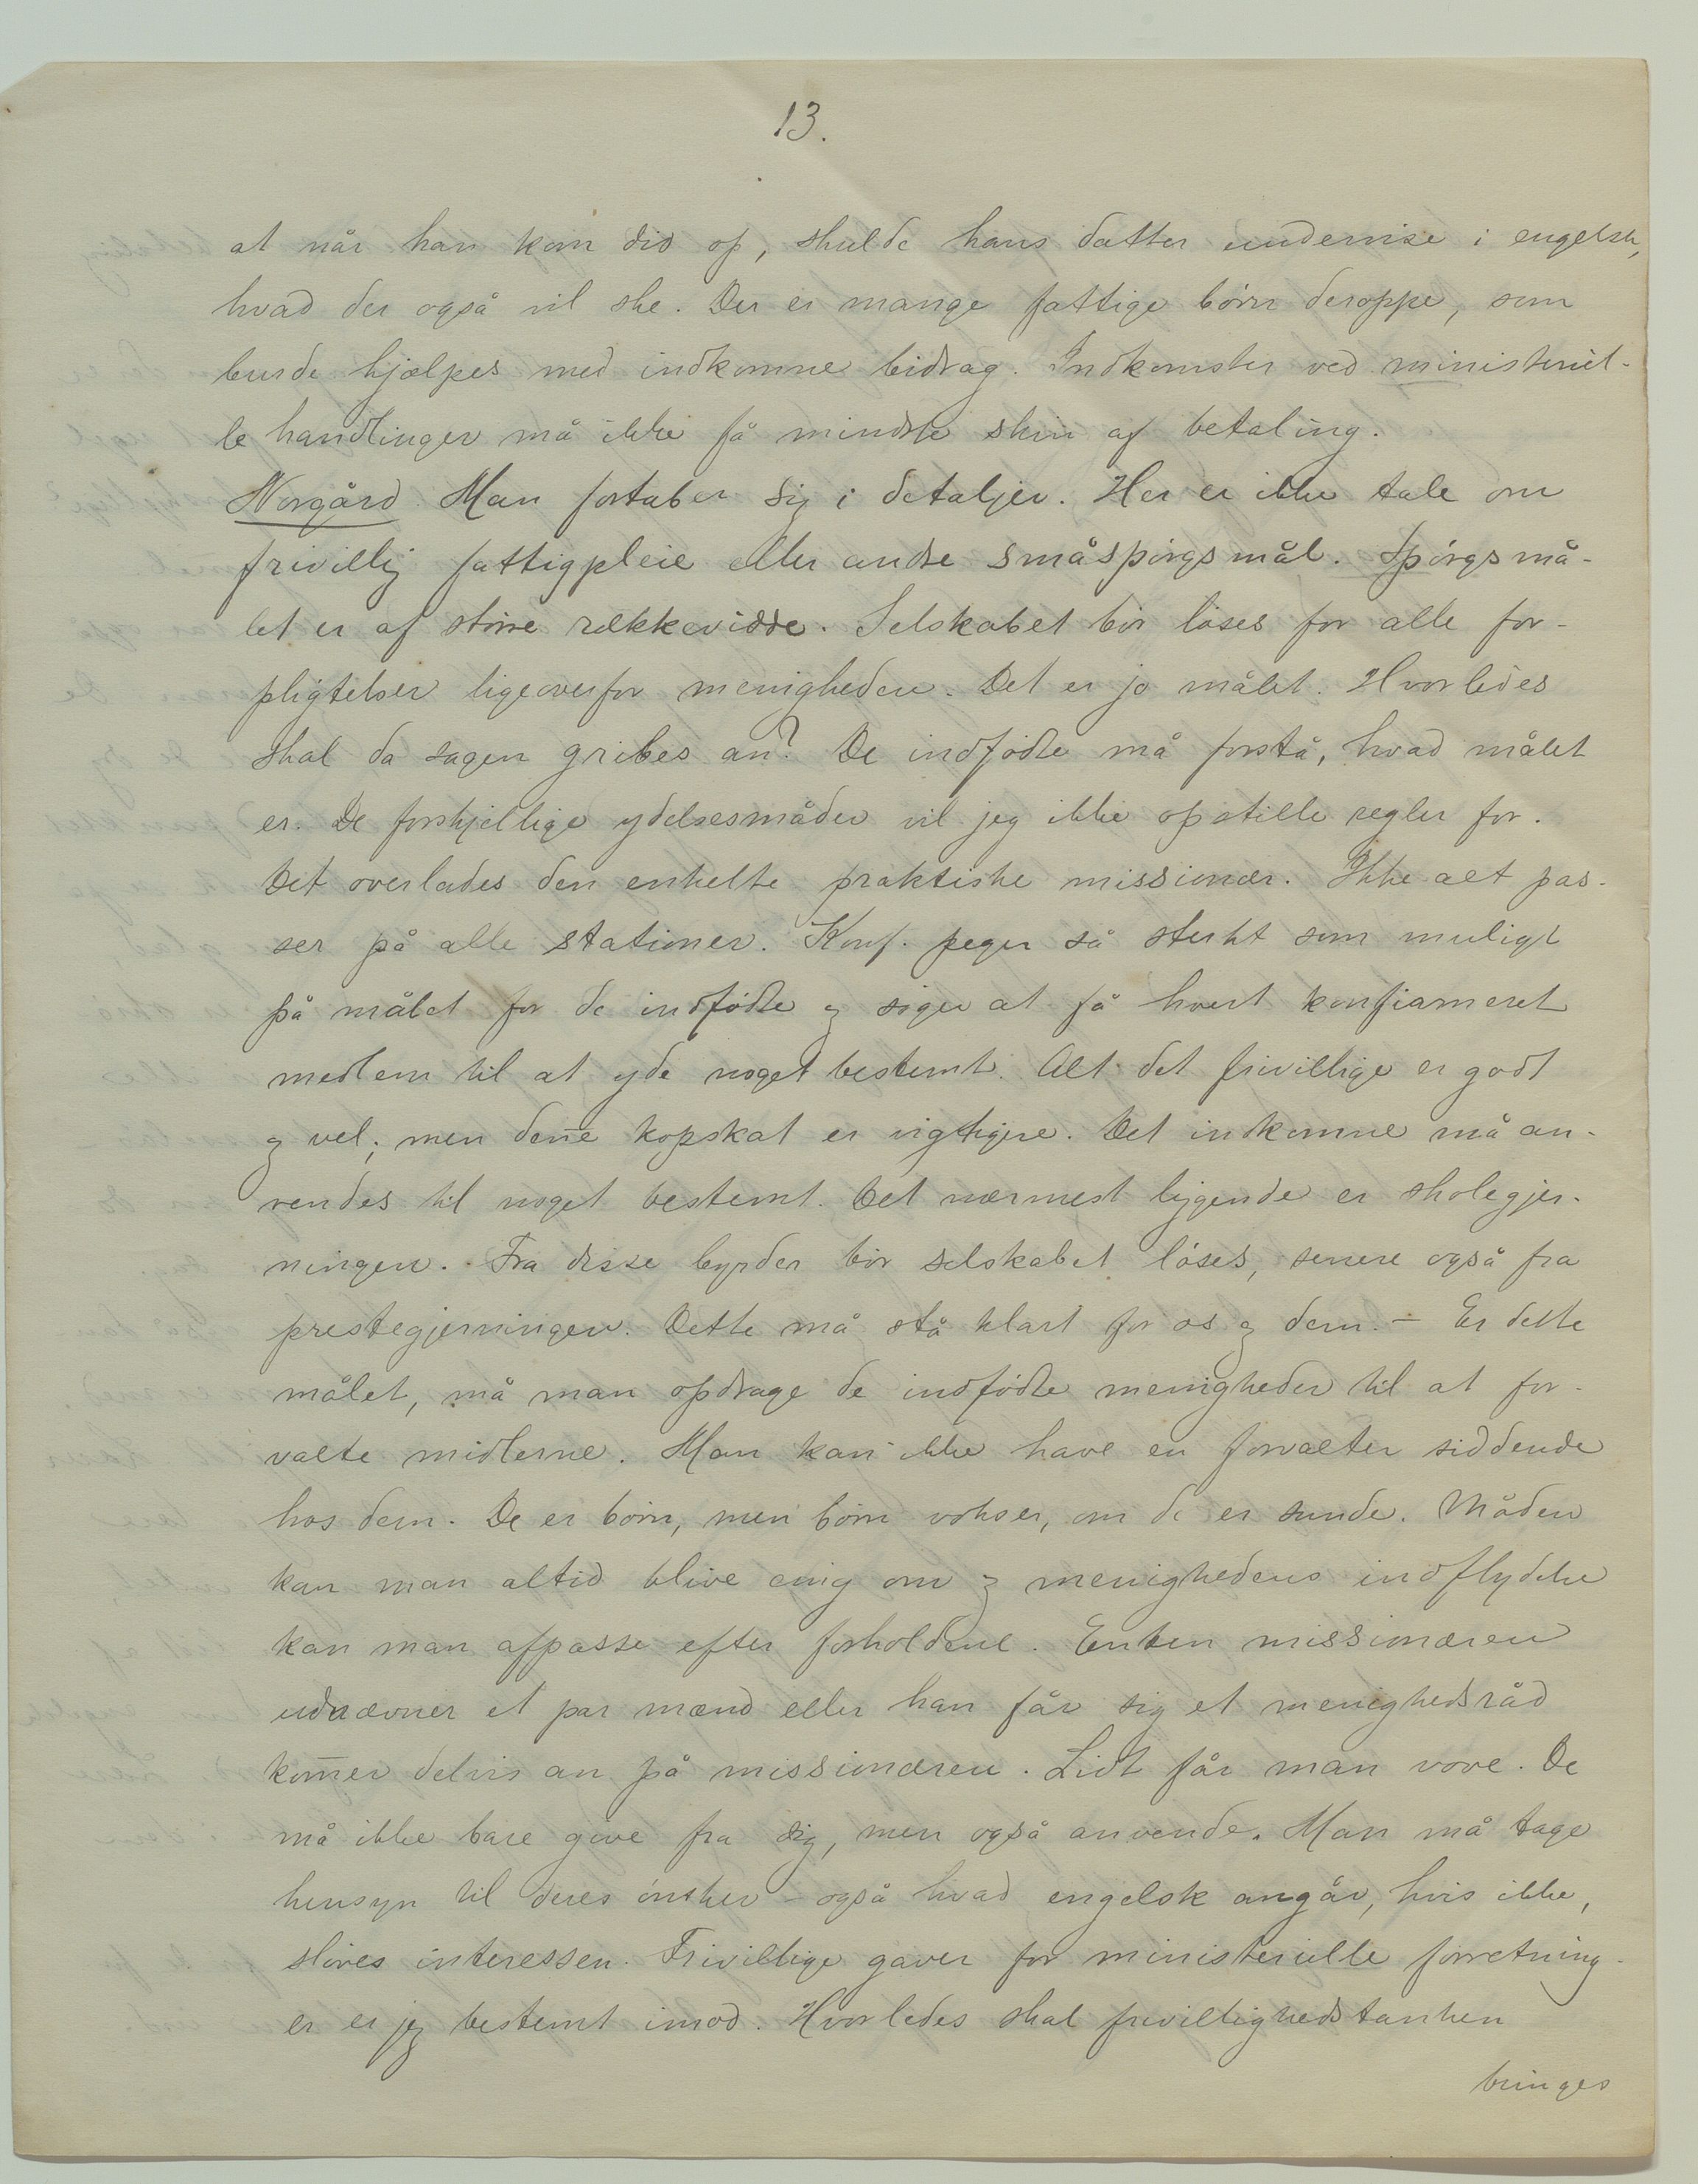 13.
at når han kom did op, skulde hans datter undervise i engelsk,
hvad der også vil ske. Der er mange fattige börn deroppe, som
burde hjælpes med indkomne bidrag. Indkomster ved ministeriel-
le handlinger må ikke få mindste skin af betaling.
Norgård Man fortaber sig i detaljer. Her er ikke tale om
frivillig fattigpleie eller andre småspörgsmål. Spörgsmå-
let er af större rækkevidde. Selskabet bör löses for alle for-
pligtelser ligeoverfor menigheden. Det er jo målet. Hvorledes
skal da sagen gribes an? De indfödte må forstå, hvad målet
er. De forskjellige ydelsesmåder vil jeg ikke opstille regler for.
Det overlades den enkelte praktiske missionær. Ikke alt pas-
ser på alle stationer. Konf. peger så sterkt som muligt
på målet for de indfödte og siger at få hvert konfirmeret
medlem til at yde noget bestemt. Alt det frivillige er godt
og vel; men denne kopskat er vigtigere. Det indkomne må an-
vendes til noget bestemt. Det nærmest liggende er skolegjer-
ningen. Fra disse byrder bör selskabet löses, senere også fra
prestegjerningen. Dette må stå klart for os og dem. - Er dette
målet, må man opdrage de indfödte menigheder til at for-
valte midlerne. Man kan ikke have en forvalter siddende
hos dem. De er börn, men börn vokser, om de er sunde. Måden
kan man altid blive enig om og menighedens indflydelse
kan man afpasse efter forholdene. Enten missionæren
udnævner et par mænd eller han får sig et menighedsråd
kom̄er delvis an på missionæren. Lidt får man vove. De
må ikke bare give fra sig, men også anvende. Man må tage
hensyn til deres önsker - også hvad engelsk angår, hvis ikke,
slöves interessen. Frivillige gaver for ministerielle forretning-
er er jeg bestemt imod. Hvorledes skal frivillighedstanken
bringes